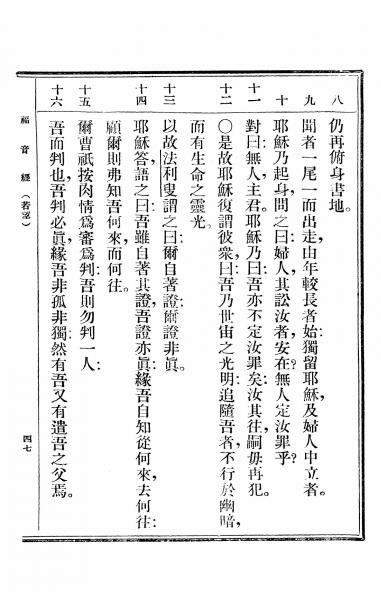 八 仍再俯身書地。
九 聞者一尾一而出走、由年較長者始獨留耶穌、及婦人中立者。
十 耶穌乃起身問之曰、婦人其訟汝者安在、無人定汝罪乎？
十一 對曰無人、主君。耶穌乃曰、吾亦不定汝罪矣、汝其往、嗣毋再犯。
十二 〇是故耶穌復謂彼衆曰、吾乃世宙之光明、追隨吾者、不行於幽暗、
而有生命之靈光。
十三 以故法利叟謂之曰、爾自著證、爾證非眞。
十四 耶穌答語之曰、吾雖自著其證、吾證亦眞、緣吾自知從何來、去何往：
顧爾則弗知吾何來而何往。
十五 爾曹祇按肉情爲審爲判、吾則勿判一人：
十六 吾而判也、吾判必眞、緣吾非孤非獨、然有吾又有遣吾之父焉。
福音經（若望）
四七